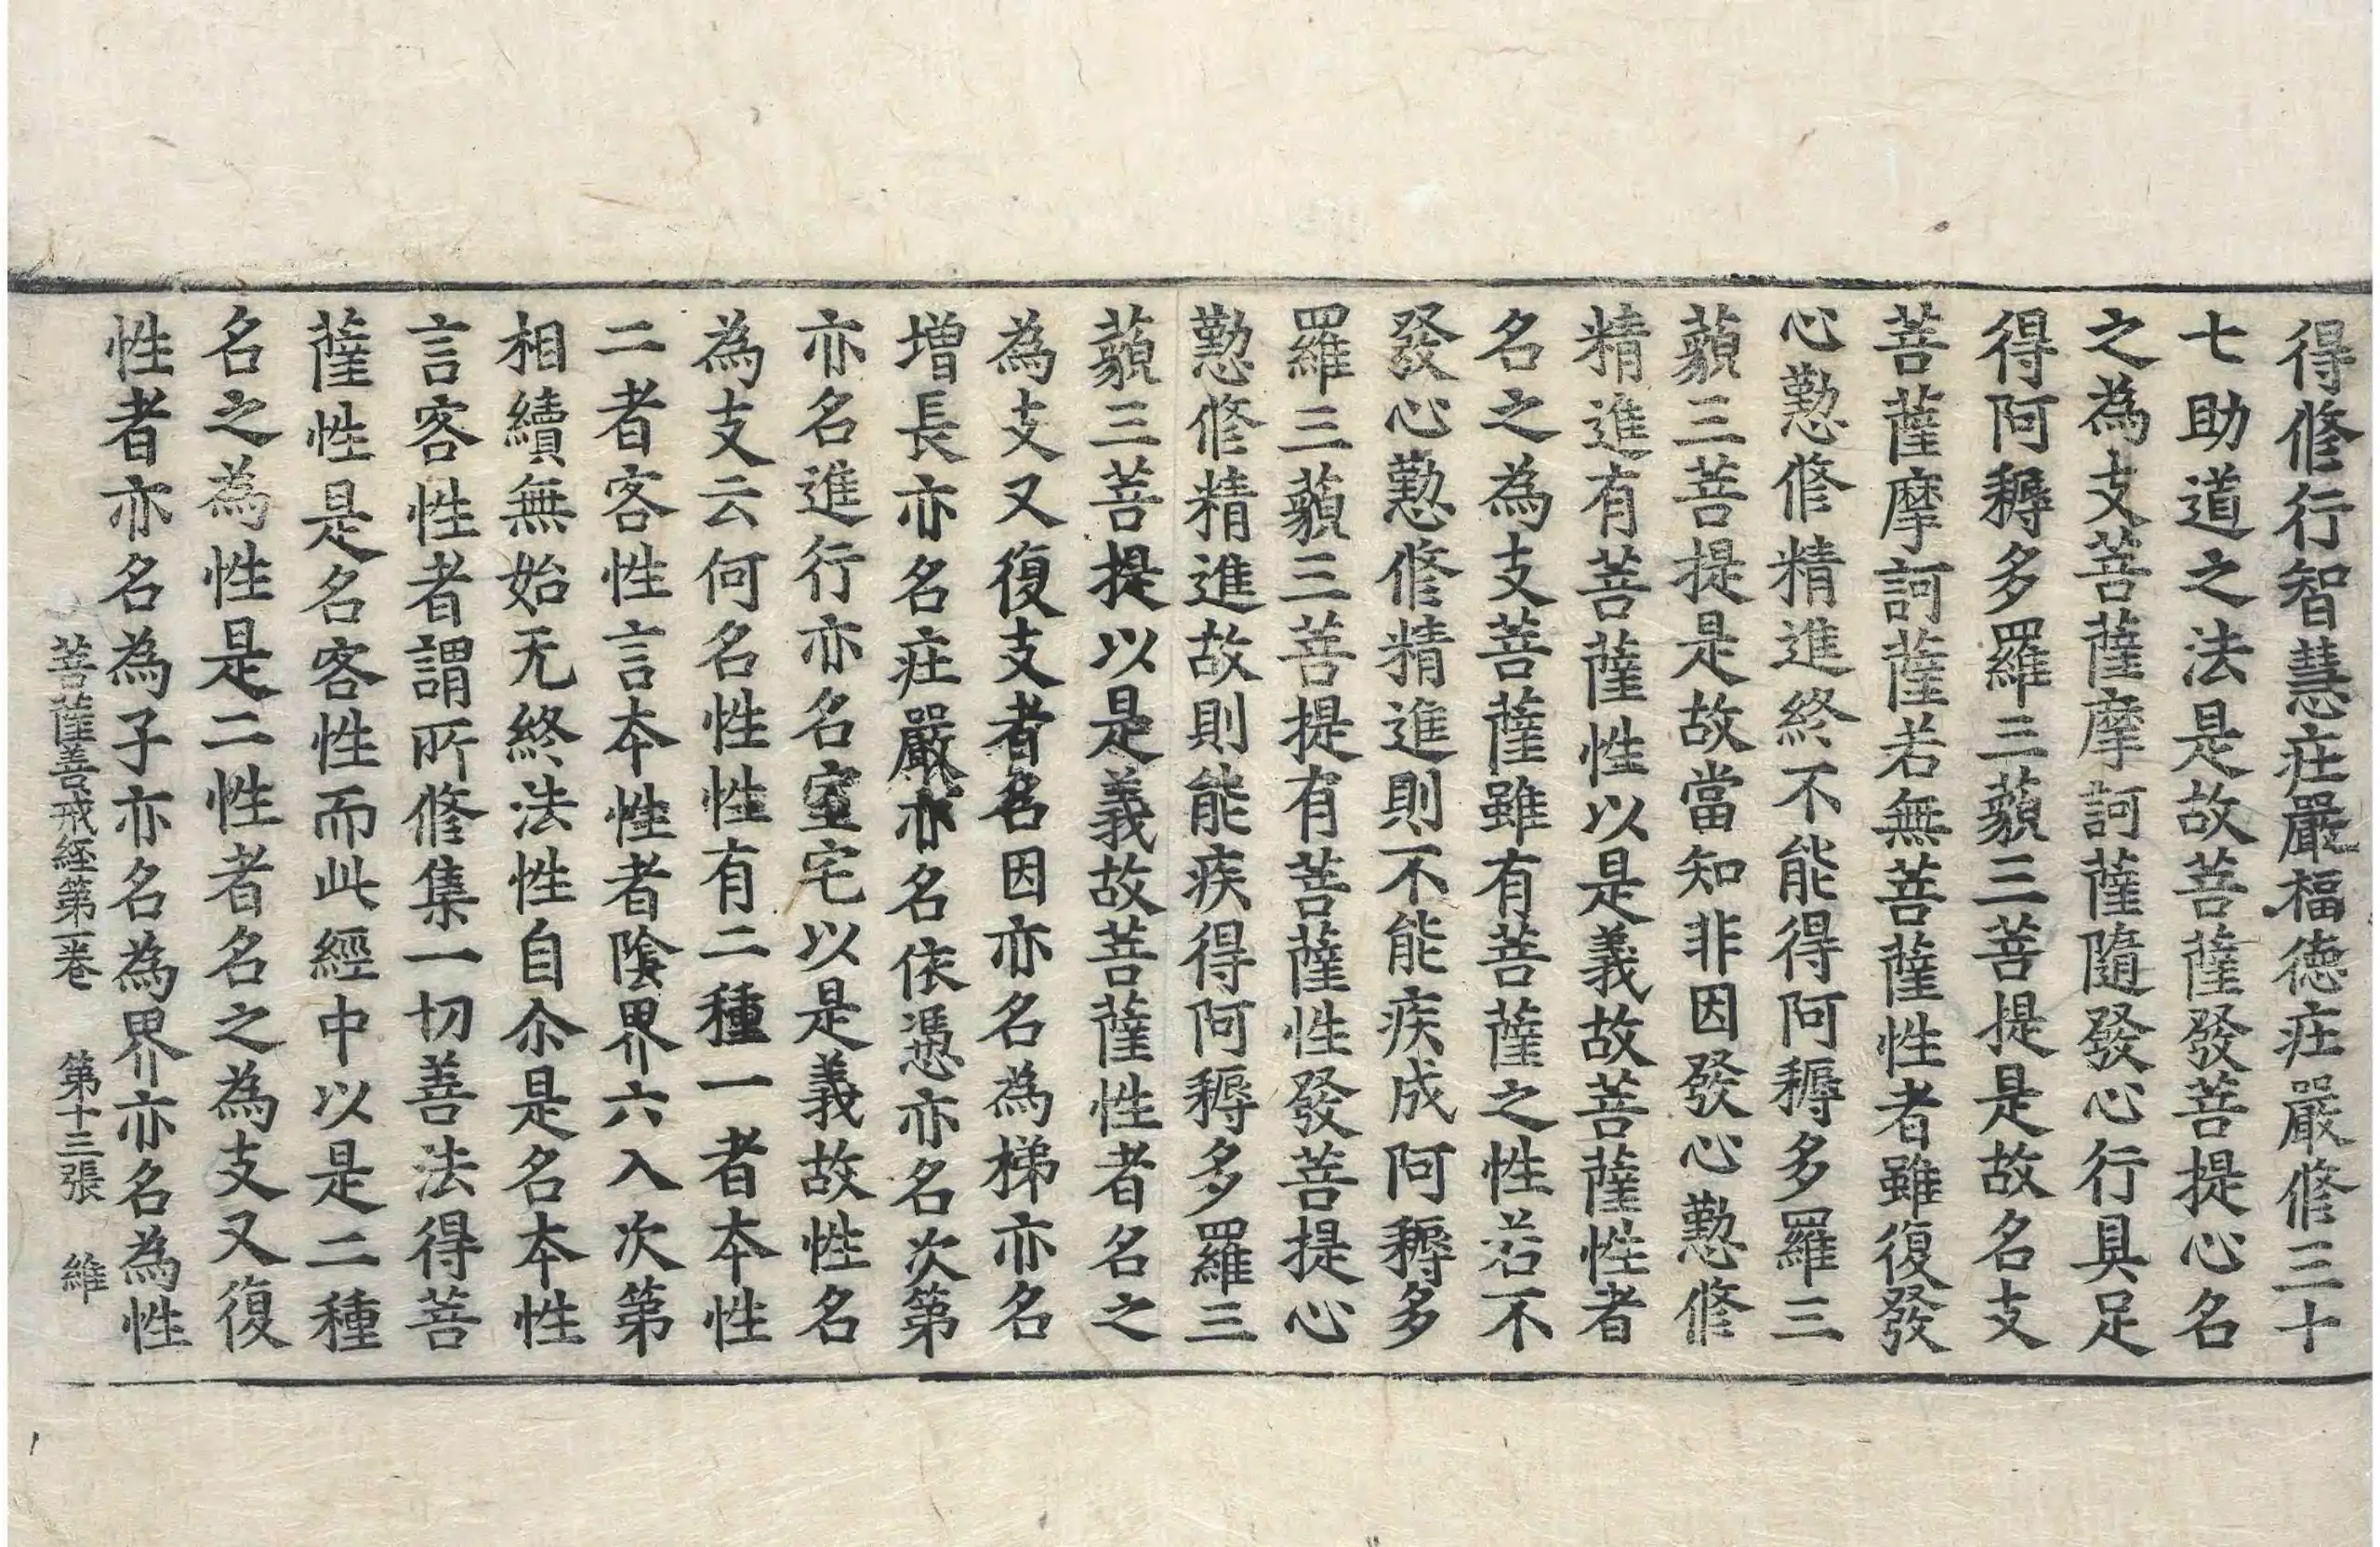 得修行智慧庄嚴福德庄嚴修三十
七助道之法是故菩薩發菩提心名
之為支菩薩摩訶薩隨發心行具足
得阿耨多羅三藐三菩提是故名支
菩薩摩訶薩若無菩薩性者雖復發
心懃修精進終不能得阿耨多羅三
藐三菩提是故當知非因發心懃修
精進有菩薩性以是義故菩薩性者
名之為支菩薩雖有菩薩之性若不
發心懃修精進則不能疾成阿耨多
羅三藐三菩提有菩薩性發菩提心
懃修精進故則能疾得阿耨多羅三
藐三菩提以是義故菩薩性者名之
為支又復支者名因亦名為梯亦名
增長亦名庄嚴亦名依憑亦名次第
亦名進行亦名室宅以是義故性名
為支云何名性性有二種一者本性
二者客性言本性者陰界六入次第
相續無始无終法性自尒是名本性
言客性者謂所修集一切善法得菩
薩性是名客性而此經中以是二種
名之為性是二性者名之為支又復
性者亦名為子亦名為界亦名為性
菩薩善戒經第一卷　第十三張　維